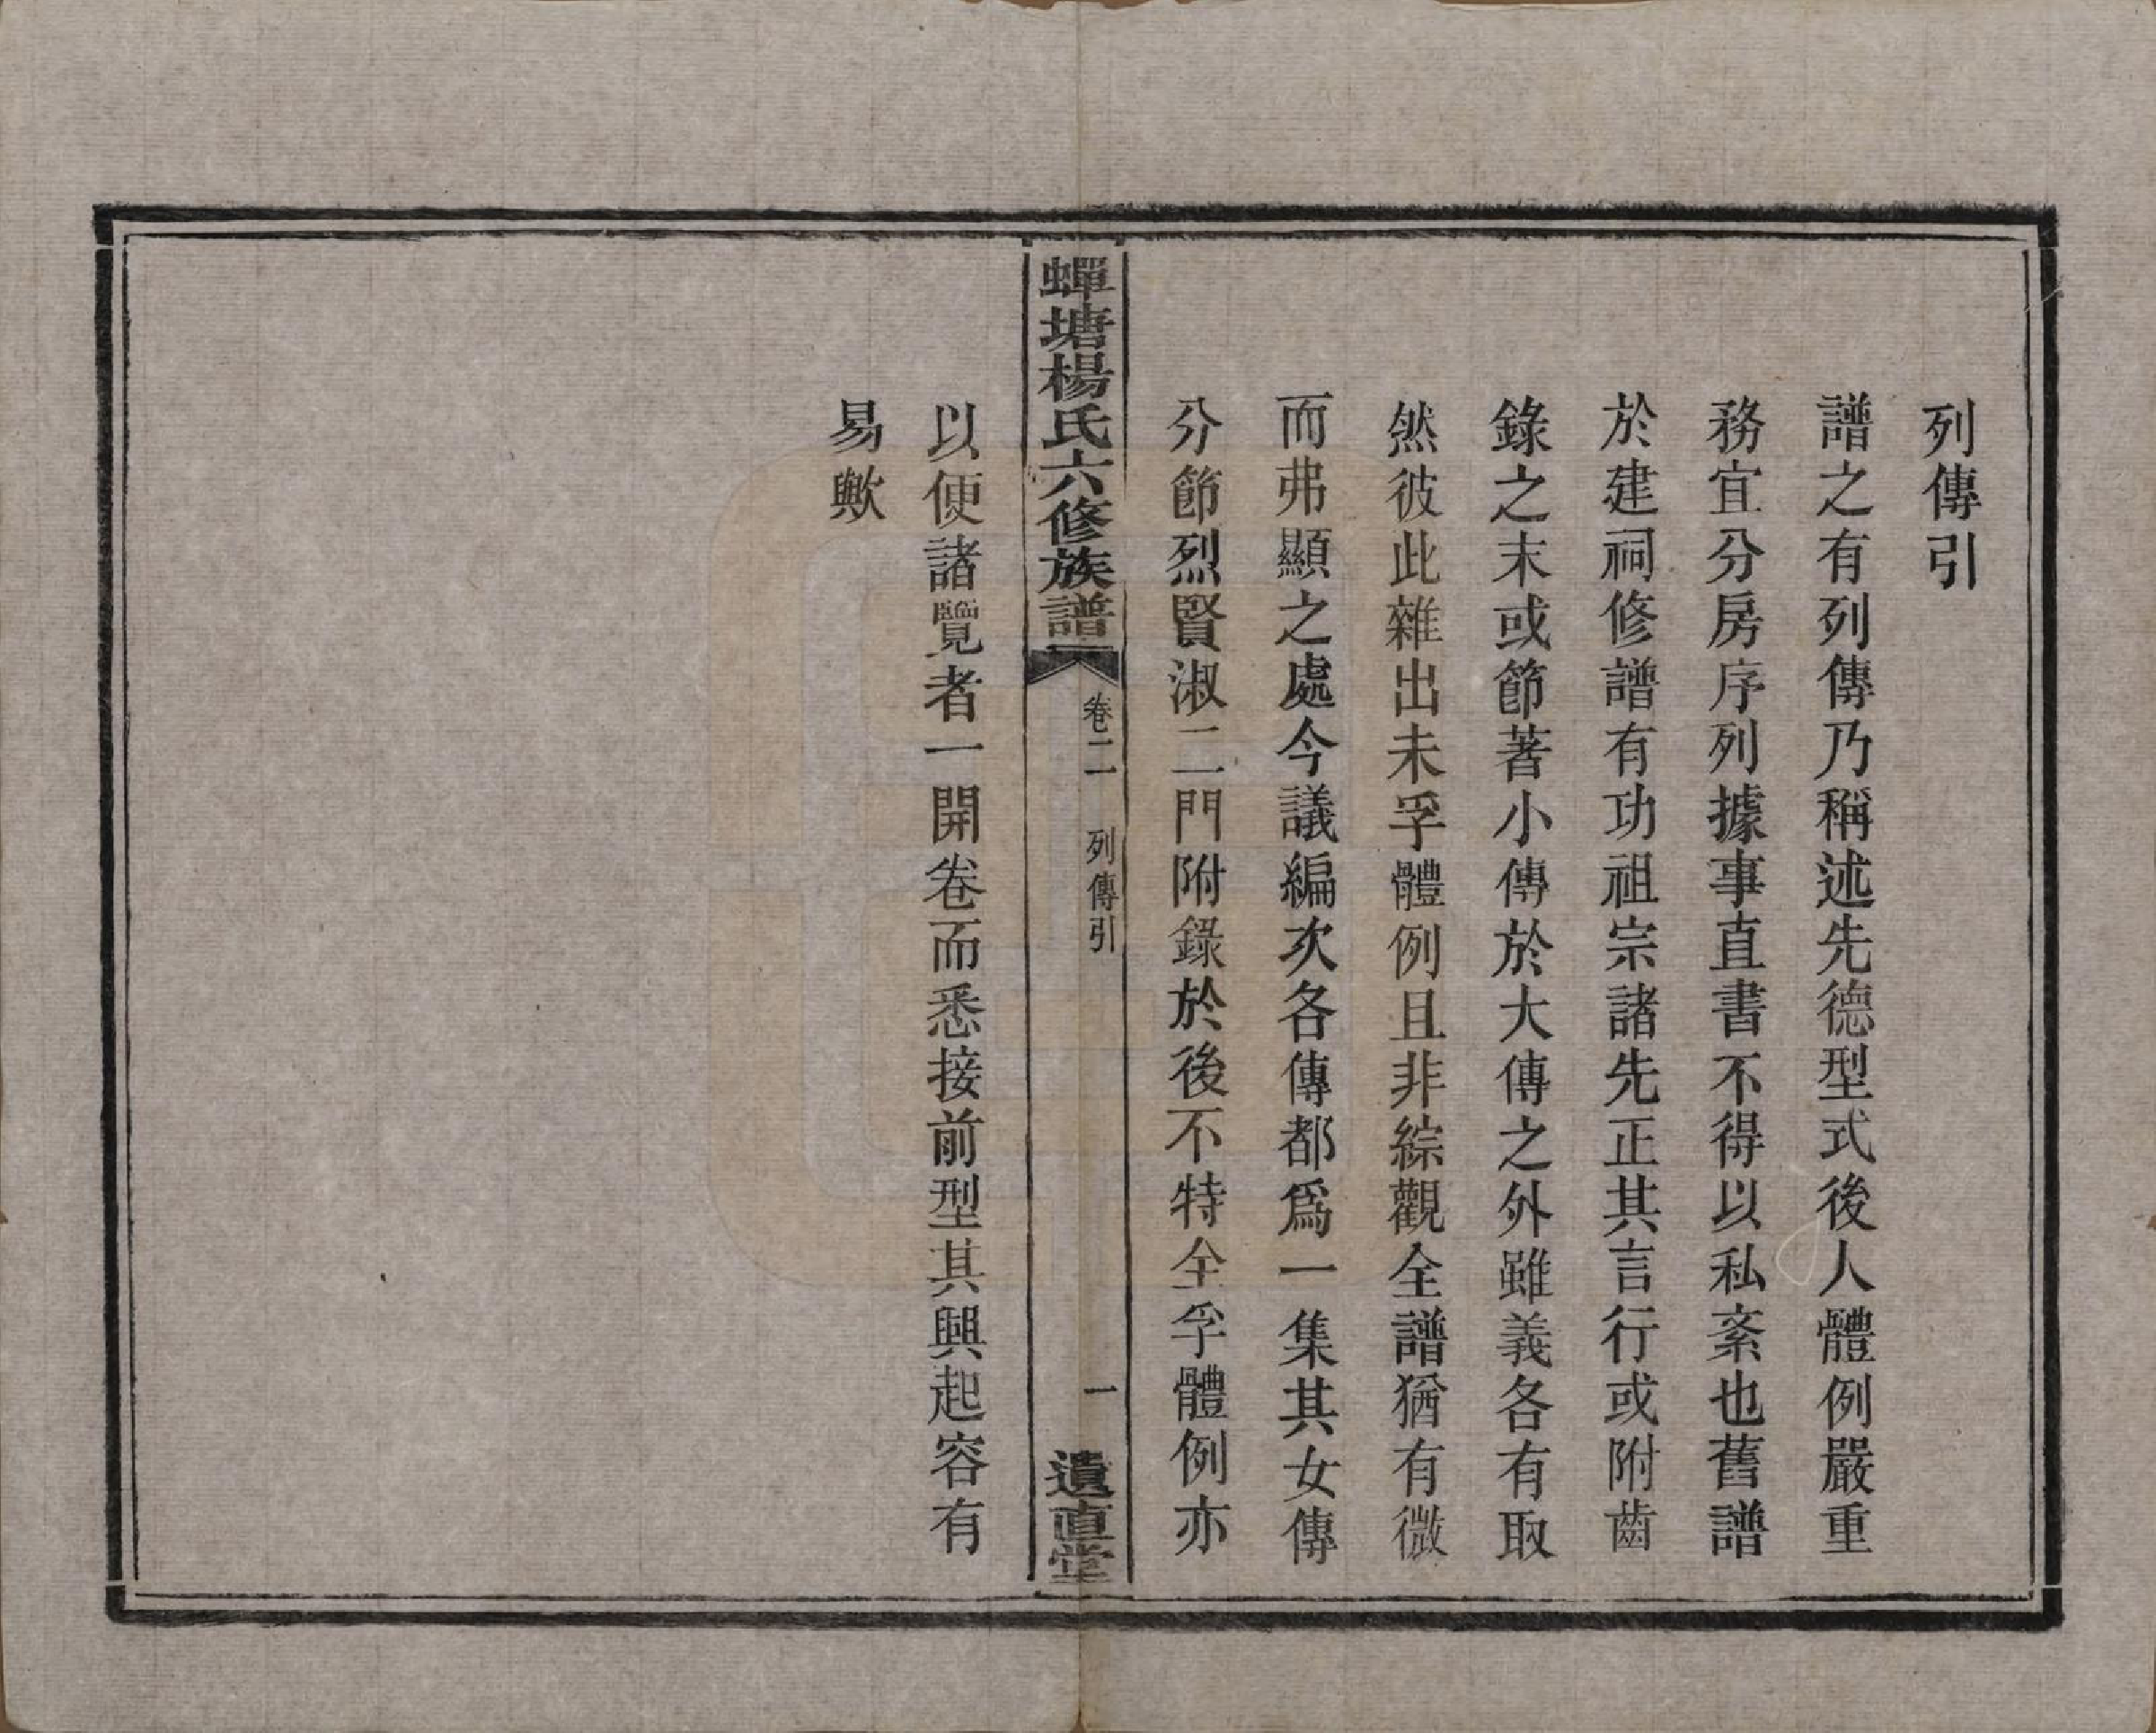 列傳引
譜之有列傳乃稱述先德型式後人體例嚴重
務宜分房序列據事直書不得以私紊也舊譜
於建祠修譜有功祖宗諸先正其言行或附齒
錄之末或節著小傳於大傳之外雖義各有取
然彼此雜出未孚體例且非綜觀全譜猶有微
而弗顯之處今議編次各傳都爲一集其女傳
分節烈賢淑二門附錄於後不特全孚體例亦
蟬塘楊氏六修族譜 卷二 列傳引 一 遺直堂
以便諸覽者一開卷而悉接前型其興起容有
易歟